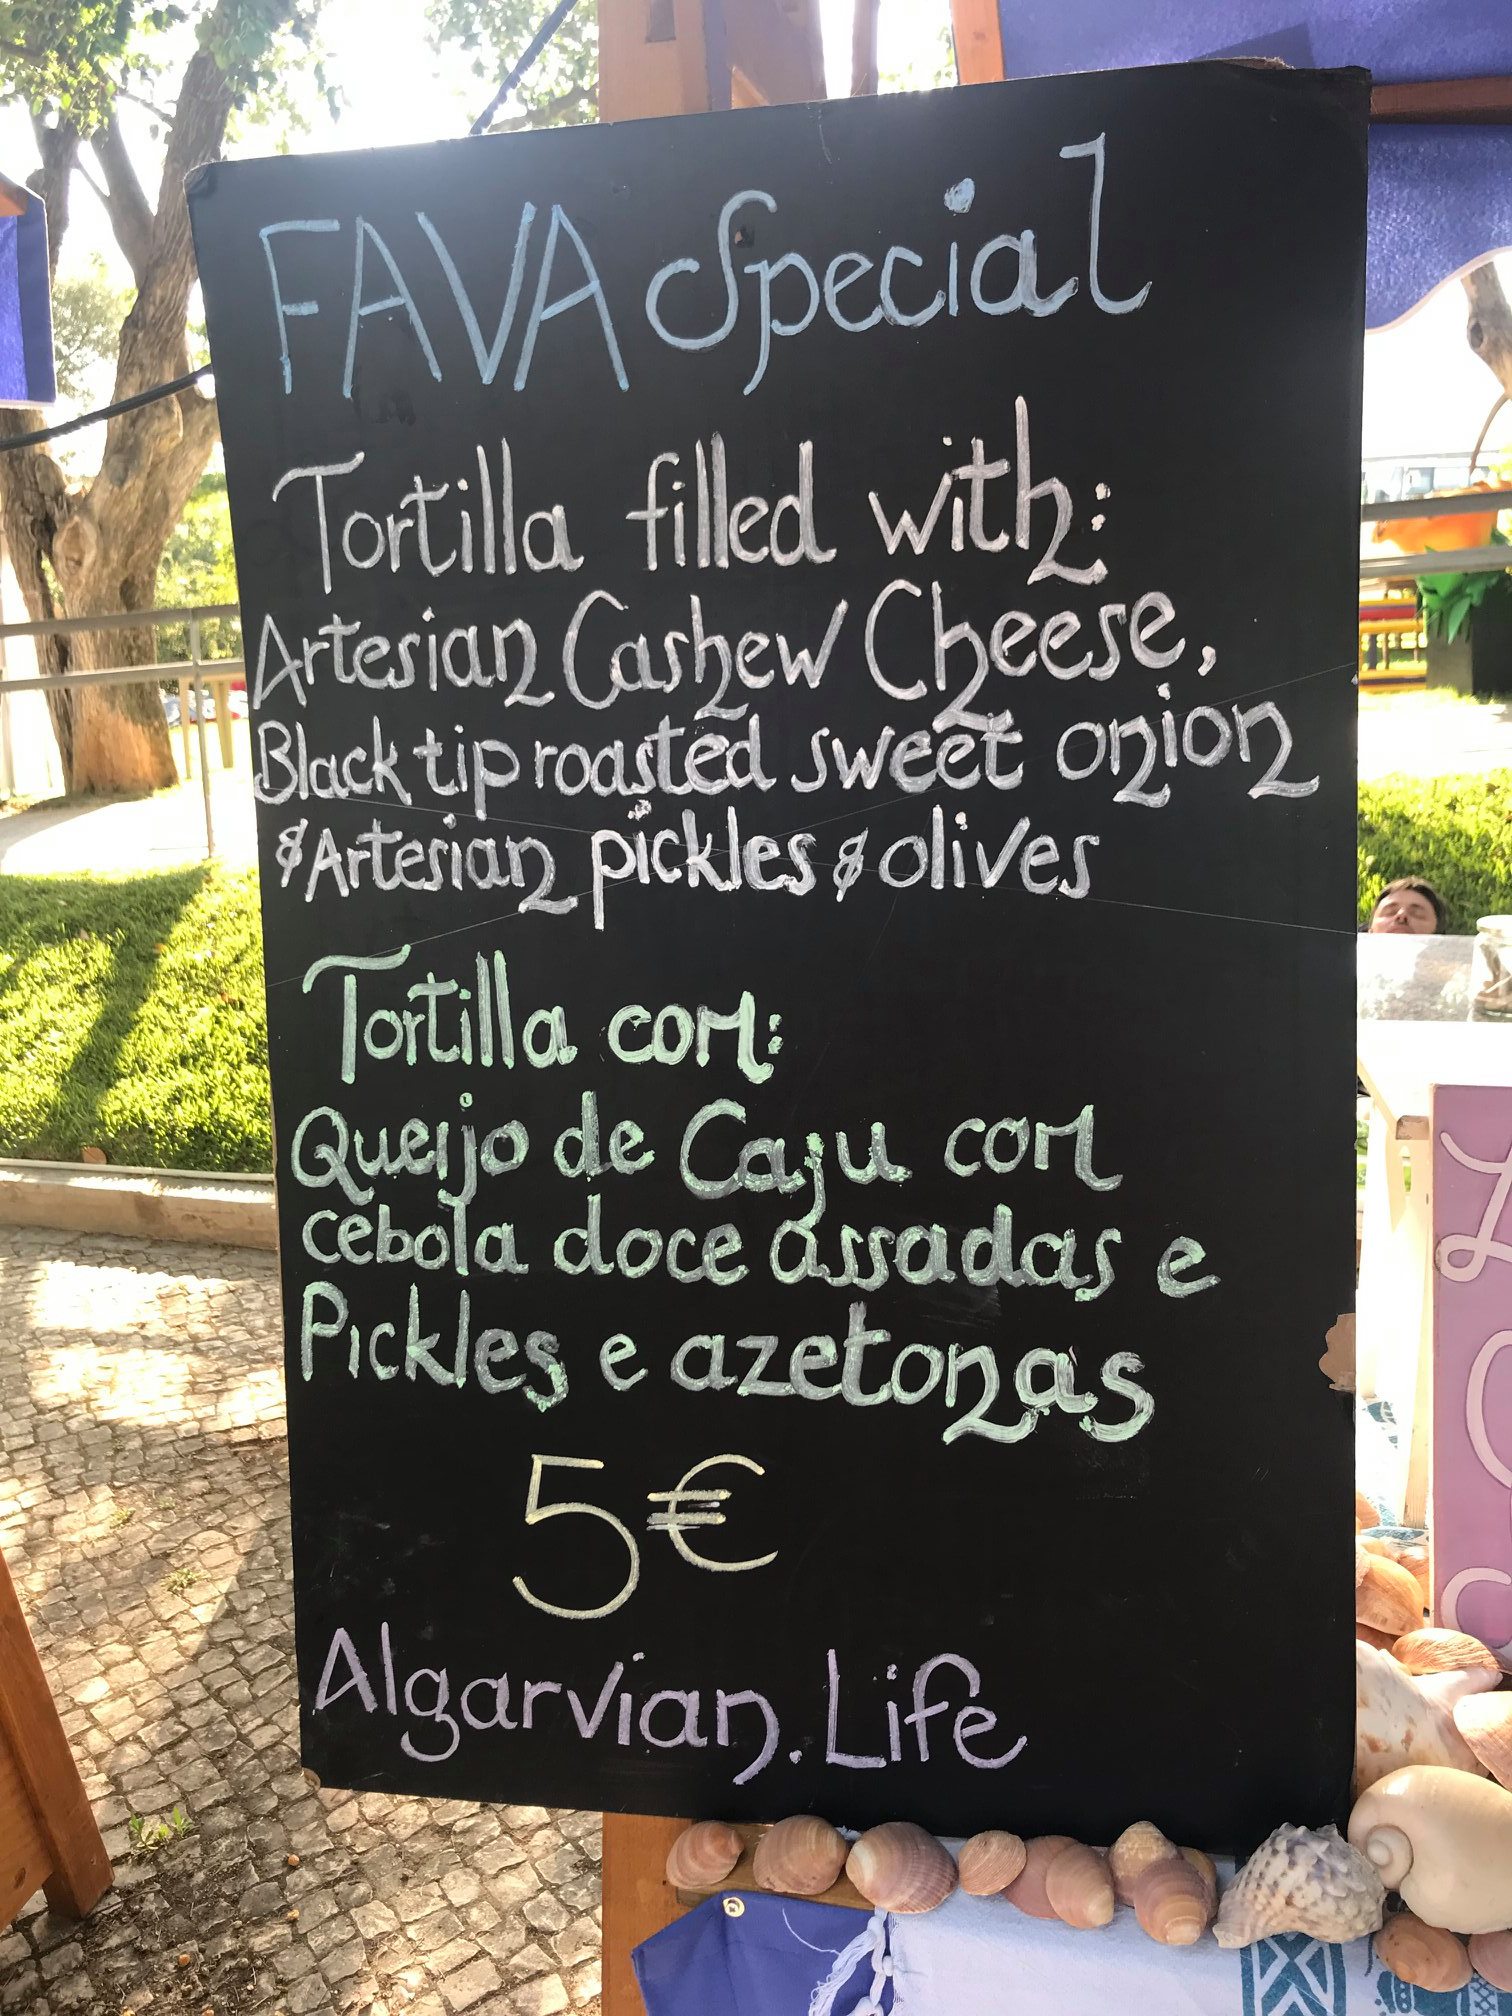 FAVA Special
Tortilla filled with:
Artesian Cashew Cheese,
Black tip roasted sweet onion
& Artesian pickles & olives
Tortilla com:
Queijo de Caju com
cebola doce assadas e
Pickles e azetonas
5€
Algarvian.Life